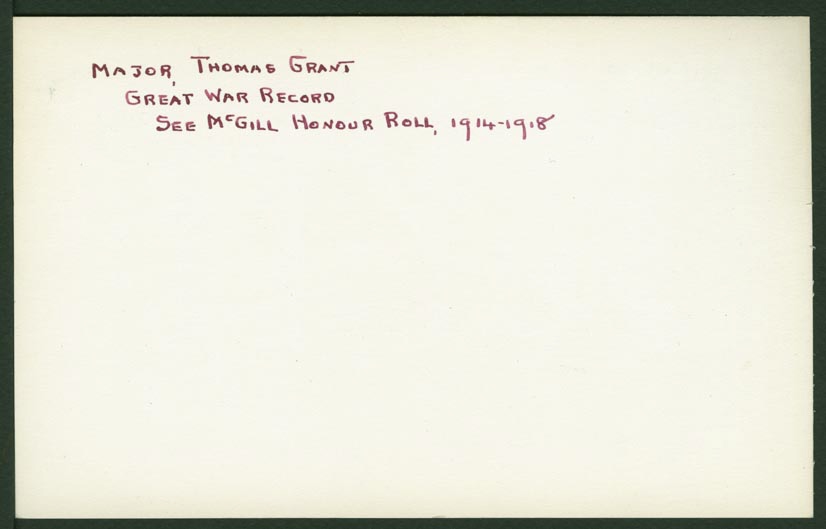 MAJOR, THOMAS GRANT
GREAT WAR RECORD
SEE McGILL HONOUR ROLL, 1914-1918